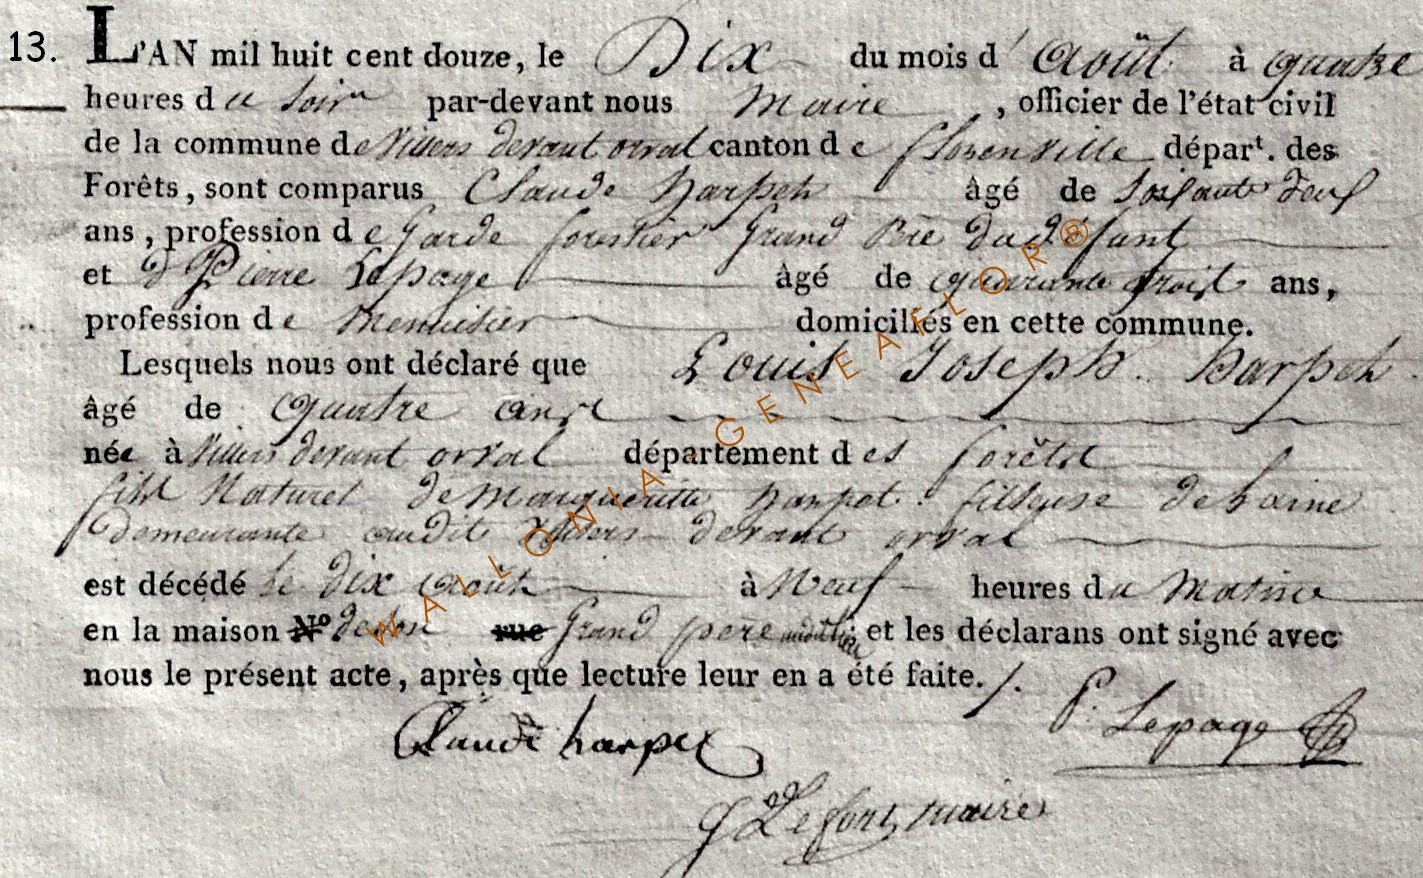 13. L'AN mil huit cent douze, le Dix du mois d' Août à quatre
heures du soir par-devant nous Maire, officier de l'état civil
de la commune de Villers devant orval canton de florenville départ. des
Forêts, sont comparus Claude harpeh âgé de soisante Neuf
ans, profession de Garde forestier Grand Père du défunt
et Pierre Lepage âgé de quarante troist ans,
profession de Menuisier domiciliés en cette commune.
Lesquels nous ont déclaré que Louis Joseph harpeh
âgé de quatre anst
née à Villers devant orval département des forêts
fils Naturel de Margueritte harpet fileuse de laine
Demeurante audit Villers devant orval
est décédé le dix août à Neuf heures du Matin
en la maison N° de son rue Grand pere audit lieu et les déclarans ont signé avec
nous le présent acte, après que lecture leur en a été faite./.
P. Lepage
Claude harpet
Lefort maire
WALLONIA - GENEAFLOR®